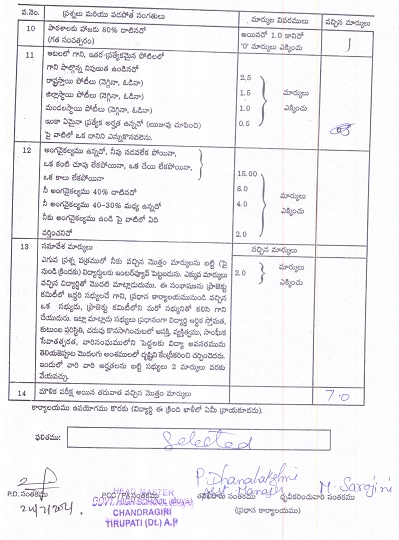 వ.నెం. ప్రశ్నలు మరియు వడపోత సంగతులు మార్కుల వివరములు వచ్చిన మార్కులు
10 పాఠశాలకు హాజరు 80% దాటినచో అయినచో 1.0 కానిచో 1
(గత సంవత్సరం) '0' మార్కులు ఎక్కించు
11 ఆటలలో గాని, ఇతర ప్రత్యేకమైన పోటీలలో
గాని పాల్గొన్న నిపుణత ఉండినచో
రాష్ట్రస్థాయి పోటీలు (నెగ్గినా, ఓడినా) 2.5
జిల్లాస్థాయి పోటీలు (నెగ్గినా, ఓడినా) 1.5 మార్కులు
మండలస్థాయి పోటీలు (నెగ్గినా, ఓడినా) 1.0 ఎక్కించు
ఇంకా ఏమైనా ప్రత్యేక అర్హత ఉన్నచో (ఋజువు చూపించి) 0.5
పై వాటిలో ఒక దానిని ఎన్నుకొనవలెను.
12 అంగవైకల్యము ఉన్నచో, నీవు నడవలేక పోయినా,
ఒక కంటి చూపు లేకపోయినా, ఒక చేయి లేకపోయినా, 15.00
ఒక కాలు లేకపోయినా
నీ అంగవైకల్యము 40% దాటినచో 8.0 మార్కులు
నీ అంగవైకల్యము 40-30% మధ్య ఉన్నచో 4.0 ఎక్కించు
నీకు అంగవైకల్యము ఉండి పై వాటిలో ఏది
వర్తించనిచో 2.0
13 సమావేశ మార్కులు వచ్చిన మార్కులు
ఎగువ ప్రశ్న పత్రములో నీకు వచ్చిన మొత్తం మార్కులను బట్టి (పై
నుండి క్రిందకు) విద్యార్థులకు ఇంటర్వ్యూవ్ పెట్టబడును. ఎక్కువ మార్కులు 2.0 మార్కులు
వచ్చిన విద్యార్థితో మొదటి మాట్లాడుదుము. ఈ సంభాషణను ప్రాజెక్టు ఎక్కించు
కమిటీలో ఇద్దరి సభ్యులచే గాని, ప్రధాన కార్యాలయమునుండి వచ్చిన
ఒక సభ్యుడు, ప్రాజెక్టు కమిటీలోని మరో సభ్యునితో కలిసి గాని
చేయుదురు. ఇట్లా మాట్లాడు సభ్యులు ప్రధానంగా విద్యార్థి ఆర్థిక స్తోమత,
కుటుంబ పరిస్థితి, చదువు కొనసాగించుటలో ఆసక్తి, వ్యక్తిత్వము, సాంఘిక
సేవాతత్పరత, వారిసంఘములోని పెద్దలకు విద్యా అవసరమును
తెలియజెప్పుట మొదలగు అంశములలో దృష్టిని కేంద్రీకరించి చర్చించెదరు.
ఇందులో వారి వారి అర్హతలను బట్టి సభ్యులు 2 మార్కులు వరకు
వేయవచ్చు.
14 మౌళిక పరీక్ష అయిన తరువాత వచ్చిన మొత్తం మార్కులు 7.0
కార్యాలయము ఉపయోగము కొరకు (విద్యార్థి ఈ క్రింది ఖాళీలో ఏమీ వ్రాయకూడదు).
ఫలితము: Selected
P. Dhanalakshmi M. Sarojini
P.D. సంతకము సంతకము సంతకము ధృవీకరించువారి సంతకము
HEAD MASTER
GOVT. HIGH SCHOOL
(ప్రధాన కార్యాలయము)
CHANDRAGIRI
TIRUPATI (Dt.) A.P